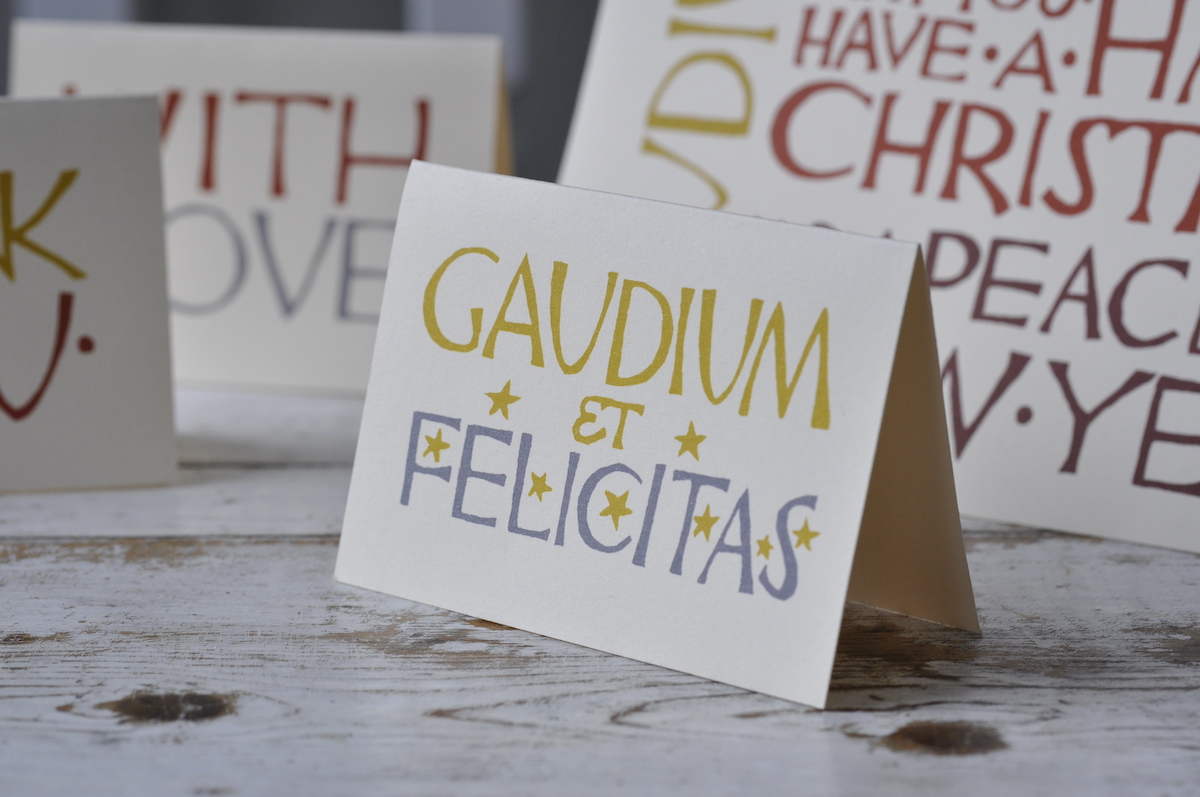 WITH
OVE
K
U.
HAVE·A·HA
CHRIST
PEACE
W·YE
GAUDIUM
ET
FELICITAS